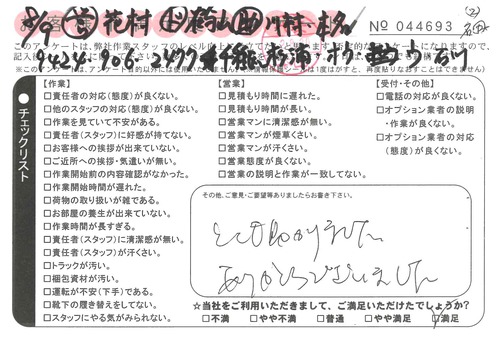 No 044693
【作業】
□責任者の対応(態度)が良くない。
□他のスタッフの対応(態度)が良くない。
□作業を見ていて不安がある。
□責任者(スタッフ)に好感が持てない。
□お客様への挨拶が出来ていない。
□ご近所への挨拶・気遣いが無い。
□作業開始前の内容確認がなかった。
□作業開始時間が遅れた。
□荷物の取り扱いが雑である。
□お部屋の養生が出来ていない。
□作業時間が長すぎる。
□責任者(スタッフ)に清潔感が無い。
□責任者(スタッフ)が汗くさい。
□トラックが汚い。
□梱包資材が汚い。
□運転が不安(下手)である。
□靴下の履き替えをしてない。
□スタッフにやる気がみられない。
【営業】
□見積もり時間に遅れた。
□見積もり時間が長い。
□営業マンに清潔感が無い。
□営業マンが煙草くさい。
□営業マンが汗くさい。
□営業態度が良くない。
□営業の説明と作業が一致してない。
【受付・その他】
□電話の対応が良くない。
□オプション業者の説明
・作業が良くない。
□オプション業者の対応
(態度)が良くない。
●チェックリスト
その他、ご意見・ご要望等ありましたらお書き下さい。
とても助かりました
ありがとうございました
☆当社をご利用いただきまして、ご満足いただけたでしょうか?
□不満 □やや不満 □普通 □やや満足 □満足